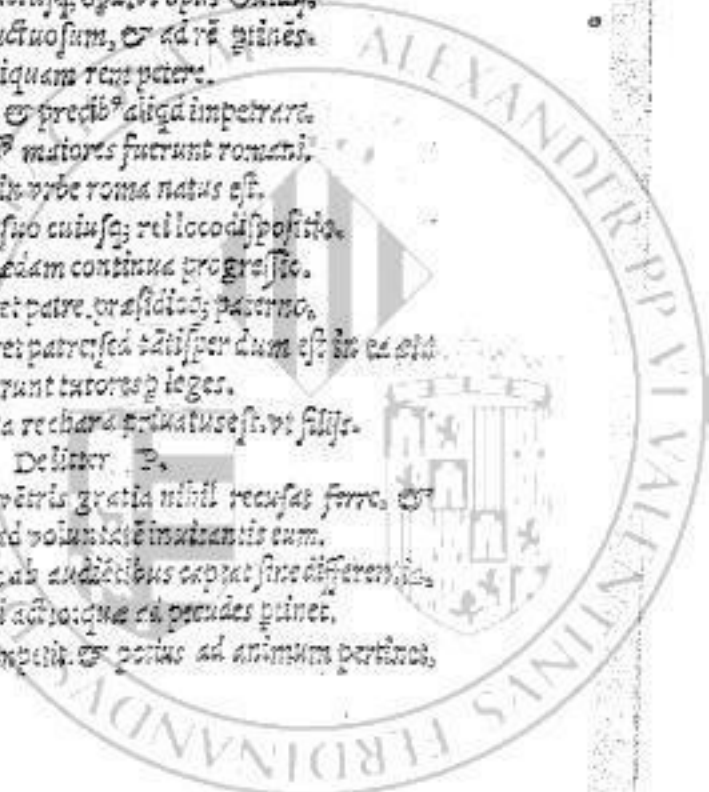 uctuosum, & ad rē ꝑtinēs.
iquam rem petere.
& precibꝰ aliqd impetrare.
maiores fuerunt romani.
in vrbe roma natus est.
suo cuiusq; rei loco dispositio.
ædam continua progressio.
et patre præsidioq; paterno.
ret patre: sed tātisper dum est in ea
runt tutores leges.
a re chara priuatus est. vt filijs.
De litter P.
vētris gratia nihil recusat ferre. &
ad voluntatē inuitantis eum.
ab audiētibus captat sine differentia.
i actio: quæ ad pecudes ꝑtinet.
& potius ad animum pertinet.
ALEXANDER PP VI VALENTINVS FERDINANDVS